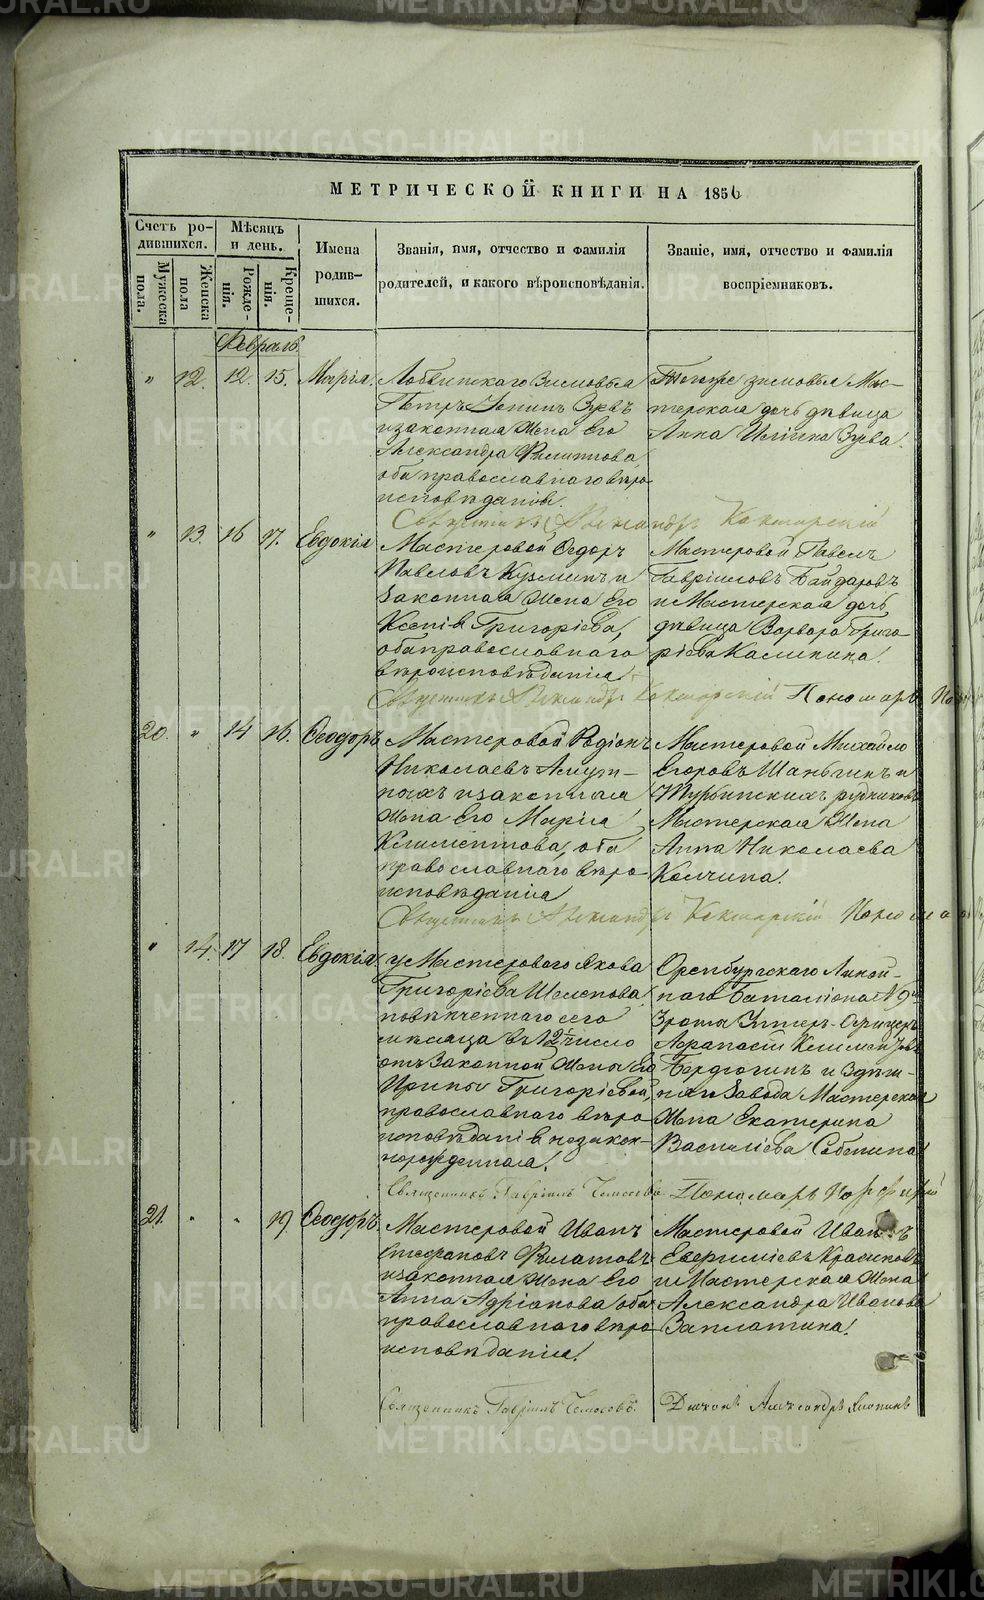 МЕТРИЧЕСКОЙ КНИГИ НА 1856
Счетъ родившихся.
Мѣсяцъ и день.
Имена родившихся.
Званія, имя, отчество и фамилія
родителей, и какого вѣроисповѣданія.
Званіе, имя, отчество и фамилія
воспріемниковъ.
Мужеска пола.
Женска пола
Рожденія.
Крещенія.
Февраль.
" 12. 12. 15. Марія.
Лобвинскаго Зимовья
Петръ Зуевъ
и законная жена его
Александра Филиппова,
оба православнаго вѣро
исповѣданія.
Тогоже зимовья Мас-
терская дочь дѣвица
Анна Ильина Зуева.
Священникъ Александръ
" 13. 16 17. Евдокія
Мастеровой Ѳедоръ
Павловъ Кузминъ и
законная жена его
Ксенія Григорьева,
оба православнаго
вѣроисповѣданія
Мастеровой Павелъ
Гавріиловъ Байдаровъ
и Мастерская дочь
дѣвица Варвара Григо
рьева Калинина.
Священникъ Александръ Пономарь
20. " 14 16. Ѳеодоръ
Мастеровой Родіонъ
Николаевъ
и законная
жена его Марія
Климентова, оба
православнаго вѣро
исповѣданія
Мастеровой Михайло
Егоровъ Шаньгинъ и
Турьинскихъ рудниковъ
Мастерская жена
Анна Николаева
Колчина.
Священникъ Александръ
" 14. 17 18. Евдокія
у Мастероваго Якова
Григорьева Шелепова
повѣнченнаго сего
мѣсяца въ 12 число
отъ законной жены его
Ирины Григорьевой,
православнаго вѣро
исповѣданія незакон-
норожденная.
Оренбургскаго Линей-
наго Баталіона № 9
Унтеръ-Офицеръ
Афанасій Климентьевъ
Бердюгинъ и здѣш-
няго Завода Мастерская
жена Екатерина
Василіева Собенина
Священникъ Гавріилъ Пономарь Порфирій
21. " " 19 Ѳеодоръ
Мастеровой Иванъ
Стефановъ Филатовъ
и законная жена его
Анна Адріанова оба
православнаго вѣро
исповѣданія.
Мастеровой Иванъ
Евфиміевъ Красиковъ
и Мастерская жена
Александра Иванова
Заплатина.
Священникъ Гавріилъ
Діаконъ Александръ
METRIKI.GASO-URAL.RU